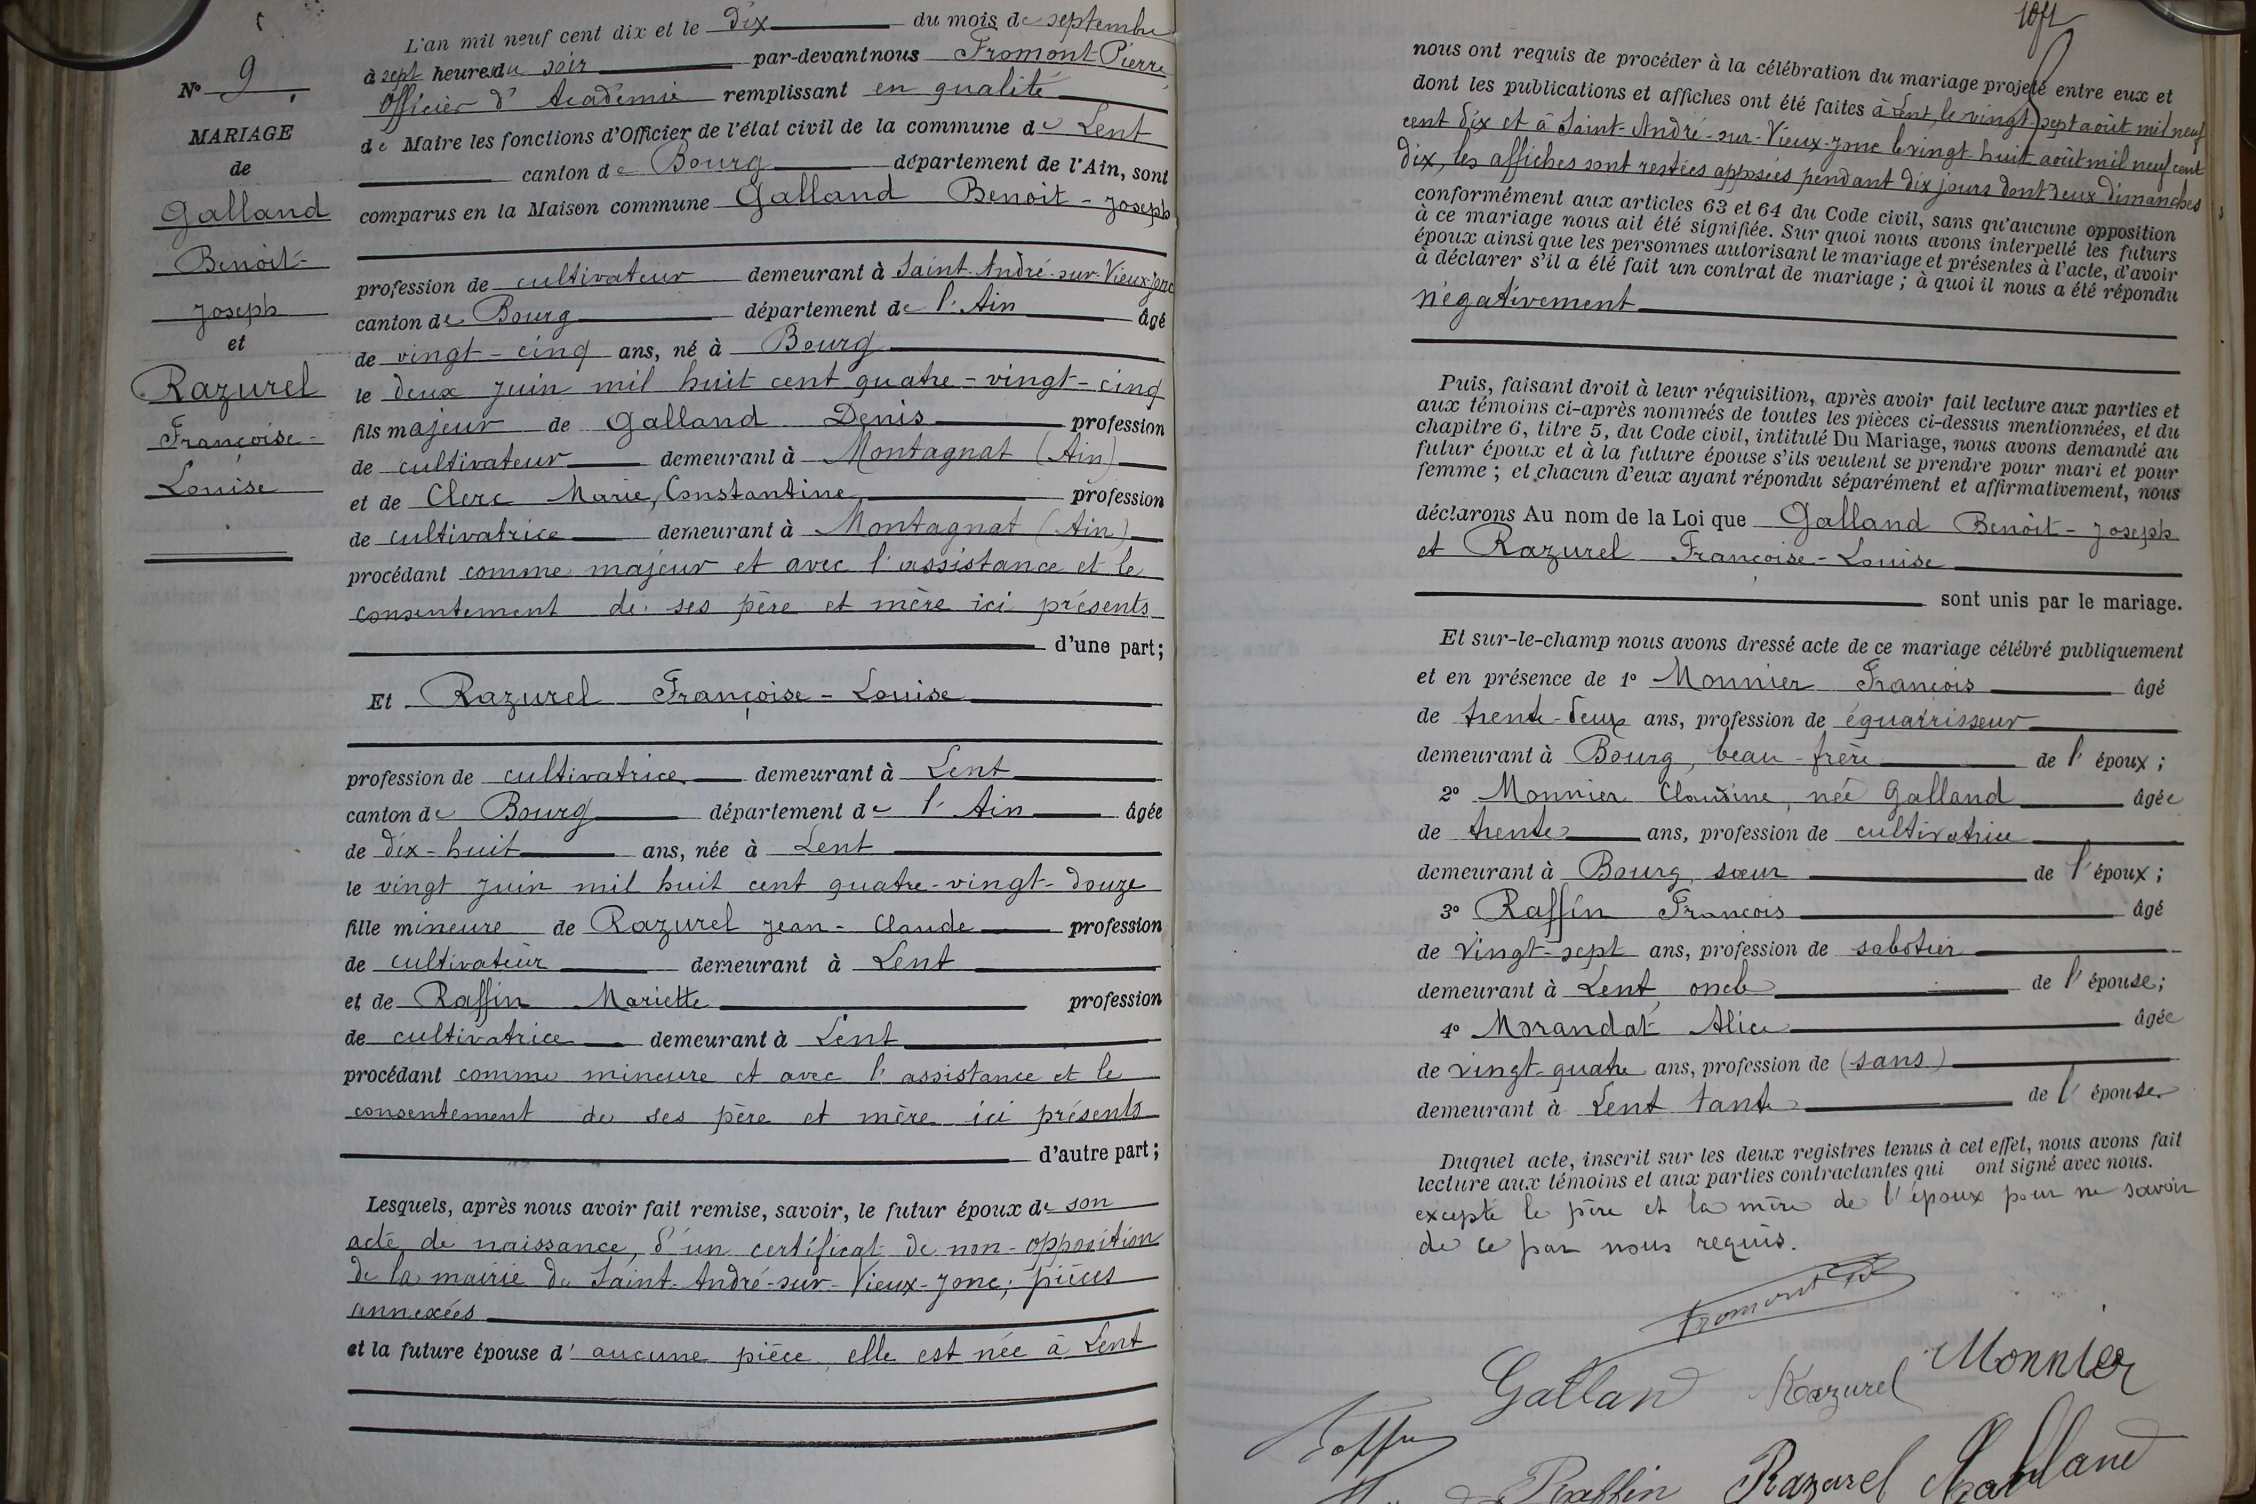 L'an mil neuf cent dix et le dix du mois de septembre
à sept heures du soir par-devant nous Fromont Pierre,
Officier d'Académie remplissant en qualité
de Maire les fonctions d'Officier de l'état civil de la commune de Lent
canton de Bourg département de l'Ain, sont
comparus en la Maison commune Galland Benoit-Joseph
profession de cultivateur demeurant à Saint-André-sur-Vieux-Jonc
canton de Bourg département de l'Ain âgé
de vingt-cinq ans, né à Bourg
le deux juin mil huit cent quatre-vingt-cinq
fils majeur de Galland Denis profession
de cultivateur demeurant à Montagnat (Ain)
et de Clerc Marie, Constantine profession
de cultivatrice demeurant à Montagnat (Ain)
procédant comme majeur et avec l'assistance et le
consentement de ses père et mère ici présents
d'une part;
Et Razurel Françoise-Louise
profession de cultivatrice demeurant à Lent
canton de Bourg département de l'Ain âgée
de dix-huit ans, née à Lent
le vingt juin mil huit cent quatre-vingt-douze
fille mineure de Razurel Jean-Claude profession
de cultivateur demeurant à Lent
et de Raffin Mariette profession
de cultivatrice demeurant à Lent
procédant comme mineure et avec l'assistance et le
consentement de ses père et mère ici présents
d'autre part;
Lesquels, après nous avoir fait remise, savoir, le futur époux de son
acte de naissance, d'un certificat de non-opposition
de la mairie de Saint-André-sur-Vieux-Jonc; pièces
annexées
et la future épouse d'aucune pièce, elle est née à Lent
No 9
MARIAGE
de
Galland
Benoit-
Joseph
et
Razurel
Françoise-
Louise
nous ont requis de procéder à la célébration du mariage projeté entre eux et
dont les publications et affiches ont été faites à Lent, le vingt-sept août mil neuf
cent dix et à Saint-André-sur-Vieux-Jonc le vingt-huit août mil neuf cent
dix, les affiches sont restées apposées pendant dix jours dont deux dimanches
conformément aux articles 63 et 64 du Code civil, sans qu'aucune opposition
à ce mariage nous ait été signifiée. Sur quoi nous avons interpellé les futurs
époux ainsi que les personnes autorisant le mariage et présentes à l'acte, d'avoir
à déclarer s'il a été fait un contrat de mariage; à quoi il nous a été répondu
négativement
Puis, faisant droit à leur réquisition, après avoir fait lecture aux parties et
aux témoins ci-après nommés de toutes les pièces ci-dessus mentionnées, et du
chapitre 6, titre 5, du Code civil, intitulé Du Mariage, nous avons demandé au
futur époux et à la future épouse s'ils veulent se prendre pour mari et pour
femme; et chacun d'eux ayant répondu séparément et affirmativement, nous
déclarons Au nom de la Loi que Galland Benoit-Joseph
et Razurel Françoise-Louise
sont unis par le mariage.
Et sur-le-champ nous avons dressé acte de ce mariage célébré publiquement
et en présence de 1o Monnier François âgé
de trente-deux ans, profession de équarrisseur
demeurant à Bourg, beau-frère de l'époux;
2o Monnier Claudine, née Galland âgée
de trente ans, profession de cultivatrice
demeurant à Bourg, sœur de l'époux;
3o Raffin François âgé
de vingt-sept ans, profession de sabotier
demeurant à Lent, oncle de l'épouse;
4o Morandat Alice âgée
de vingt-quatre ans, profession de (sans)
demeurant à Lent tante de l'épouse
Duquel acte, inscrit sur les deux registres tenus à cet effet, nous avons fait
lecture aux témoins et aux parties contractantes qui ont signé avec nous.
excepté le père et la mère de l'époux pour ne savoir
de ce par nous requis.
Fromont
Galland Razurel Monnier
Raffin Razurel Galland